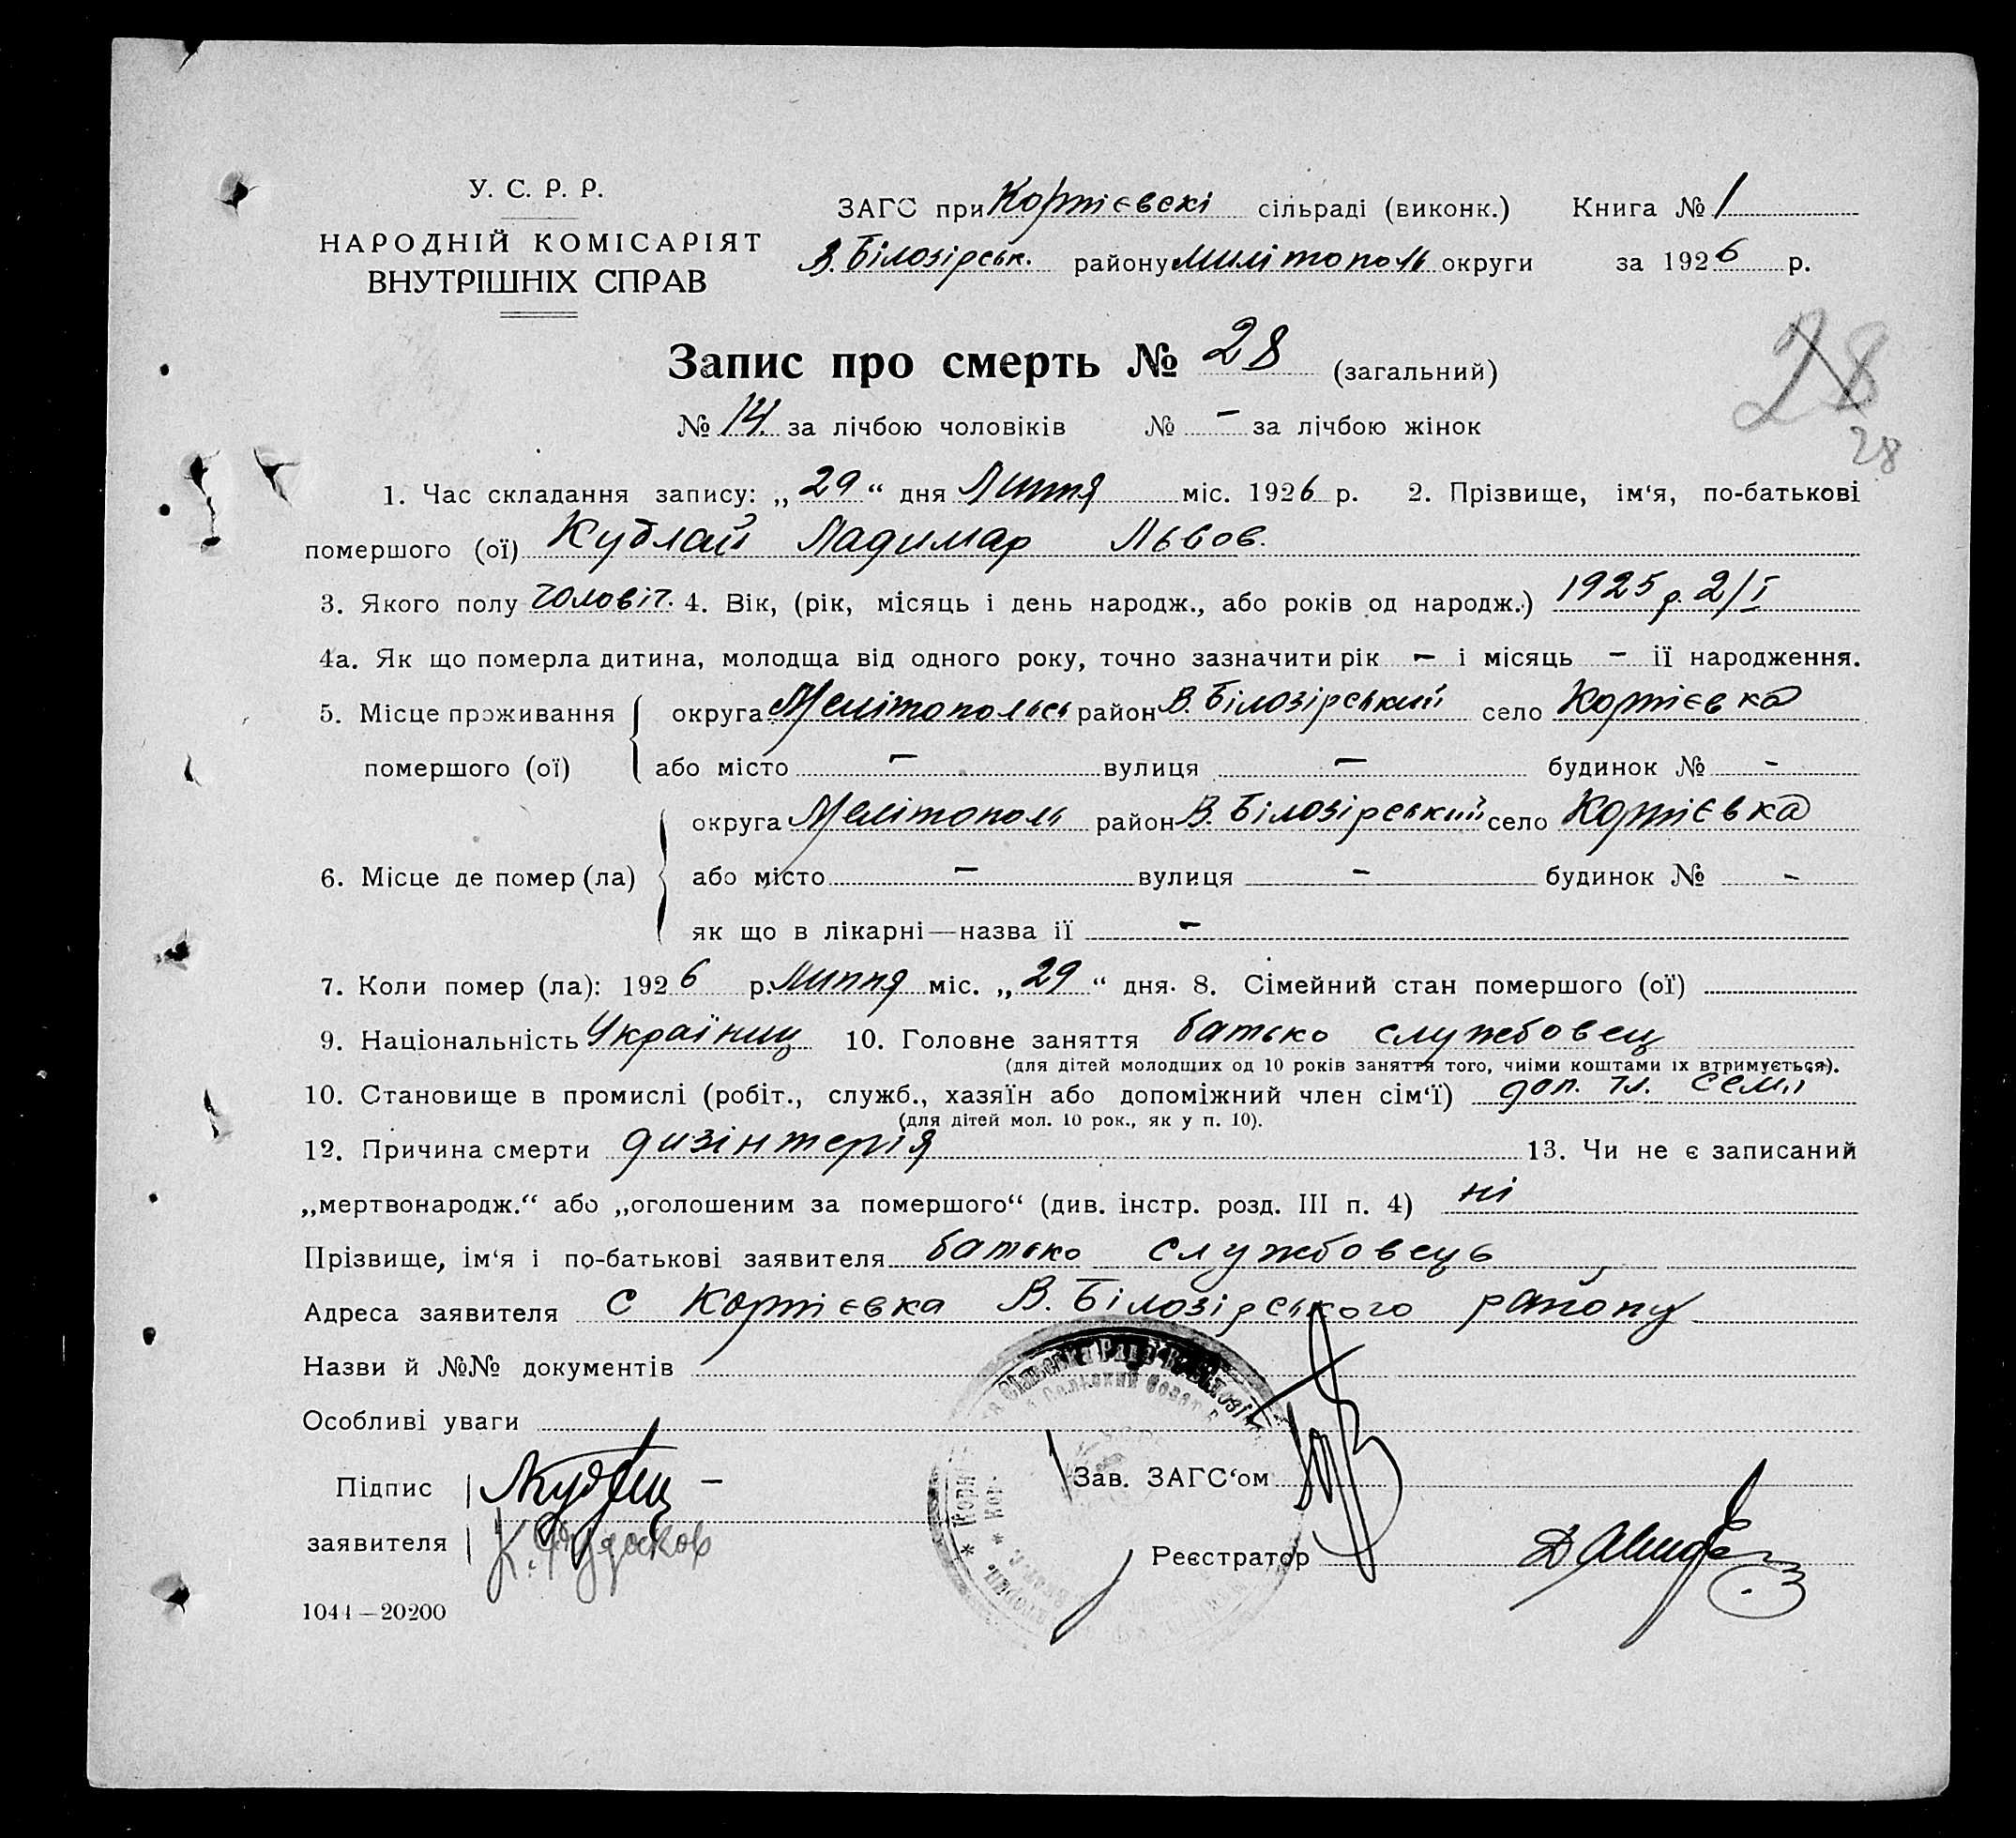 У. С. Р. Р.
НАРОДНІЙ КОМІСАРІЯТ
ВНУТРІШНІХ СПРАВ
ЗАГС при Корнієвскі сільраді (виконк.) Книга № 1
В. Білозірськ. району Милітополь округи за 1926 р.
Запис про смерть № 28 (загальний)
28
28
№ 14 за лічбою чоловіків № - за лічбою жінок
1. Час складання запису: „ 29 “ дня Липня міс. 1926 р. 2. Прізвище, ім‘я, по-батькові
помершого (ої) Кублай Ладимар Львов.
3. Якого полу чоловіч. 4. Вік, (рік, місяць і день народж., або років од народж.) 1925 р. 2/I
4а. Як що померла дитина, молодща від одного року, точно зазначити рік - і місяць - її народження.
5. Місце проживання округа Мелітопольсь район В. Білозірський село Корнієвка
помершого (ої) або місто - вулиця - будинок № -
округа Мелітополь район В. Білозірський село Корнієвка
6. Місце де помер (ла) або місто - вулиця - будинок № -
як що в лікарні—назва ії -
7. Коли помер (ла): 1926 р. Липня міс. „ 29 “ дня. 8. Сімейний стан помершого (ої)
9. Національність Українц 10. Головне заняття батько службовец
(для дітей молодших од 10 років заняття того, чиїми коштами їх втримується).
10. Становище в промислі (робіт., служб., хазяїн або допоміжний член сім‘ї) доп. чл. семї
(для дітей мол. 10 рок., як у п. 10).
12. Причина смерти дизінтерія 13. Чи не є записаний
„мертвонародж.“ або „оголошеним за помершого“ (див. інстр. розд. III п. 4) ні
Прізвище, ім‘я і по-батькові заявителя батько службовець
Адреса заявителя с Корнієвка В. Білозірського району
Назви й №№ документів
Особливі уваги
Підпис
заявителя
Зав. ЗАГС‘ом
Реєстратор
1044—20200